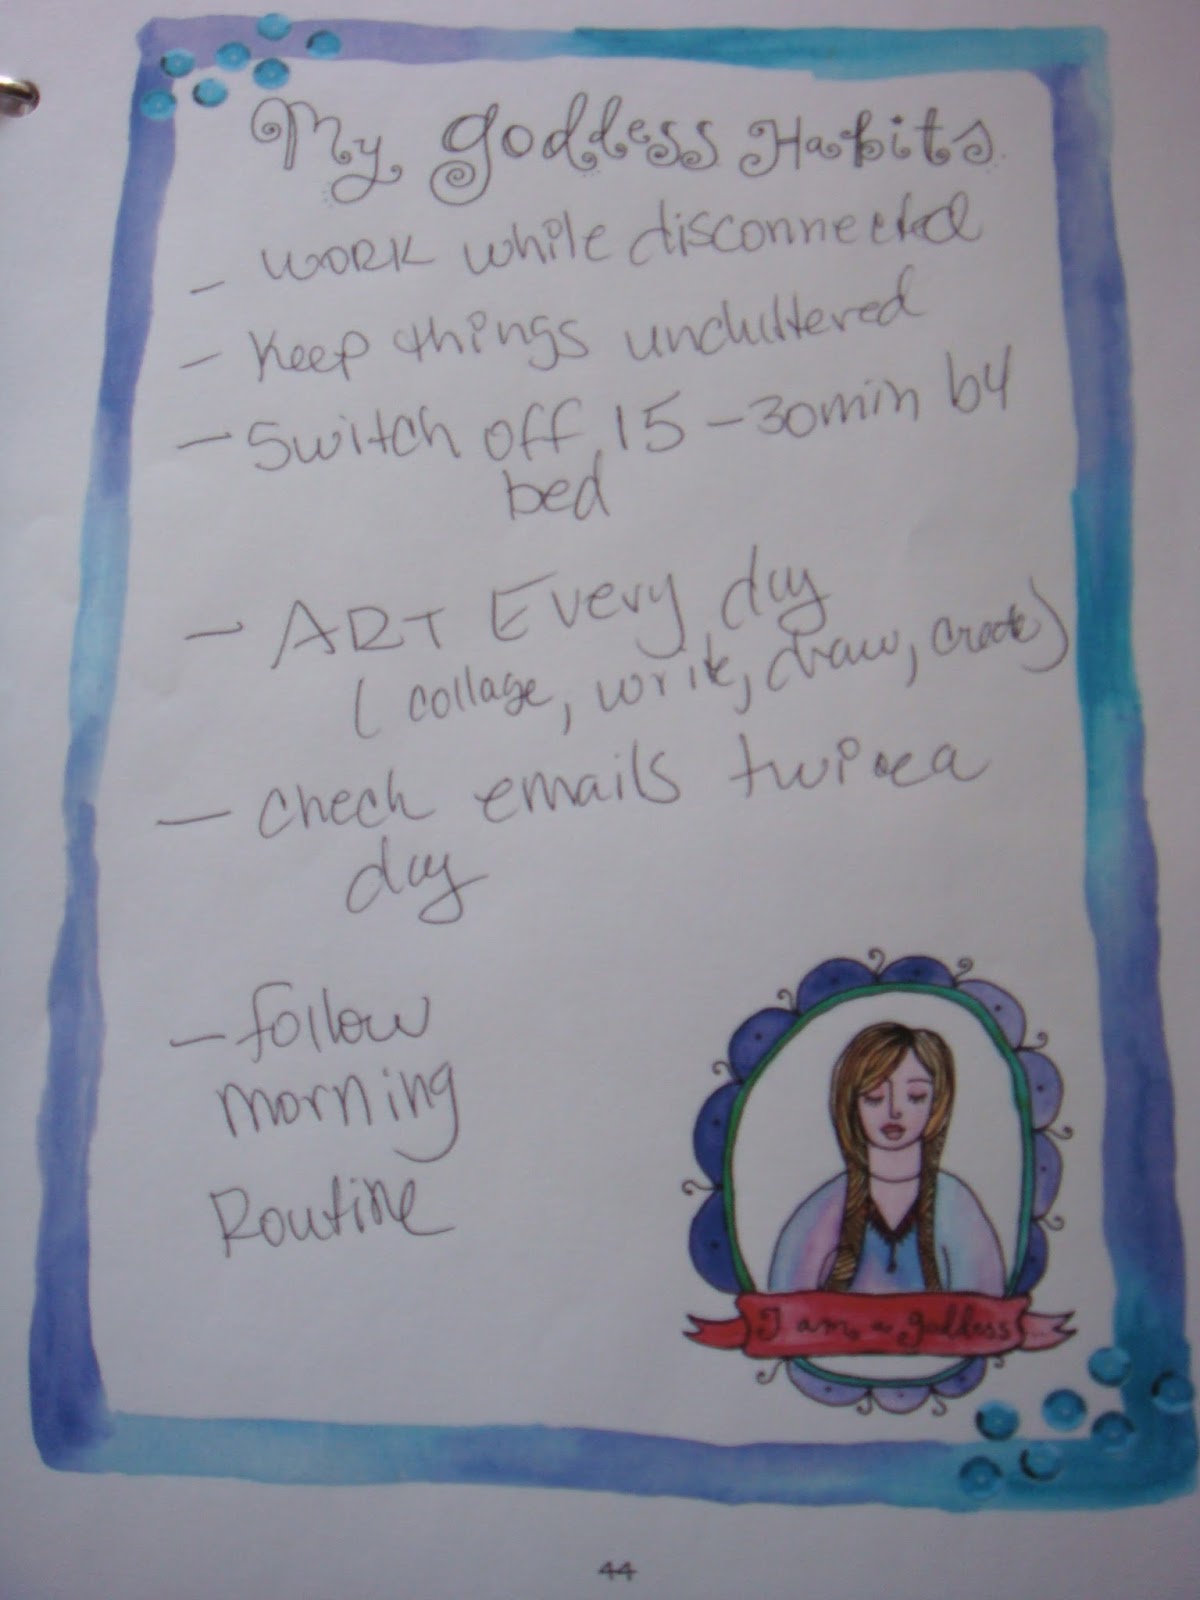 My Goddess Habits
- WORK while disconnected
- Keep things uncluttered
- Switch off 15-30min by
bed
- ART Every day
(collage, write, draw, create)
- Check emails twice a
day
- follow
morning
Routine
I am a goddess
44